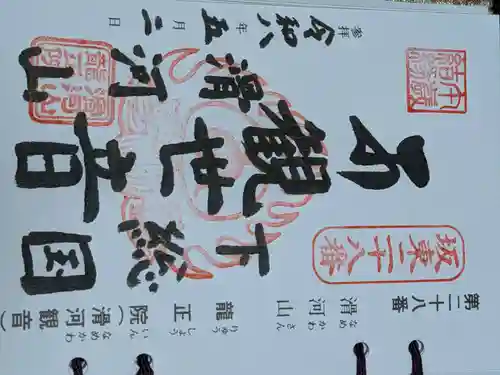 第二十八番
なめかわさん
滑河山
りゅうしょういん　なめかわ
龍正院（滑河観音）
坂東二十八番
下総国
観世音
滑河山
参拝 令和八年五月二日
滑河山
龍正院